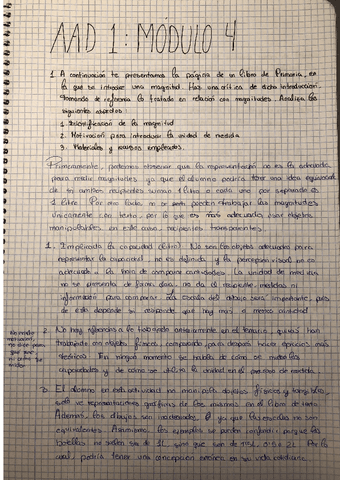 AAD 1: MÓDULO 4
1. A continuación te presentamos la página de un libro de Primaria, en
la que se introduce una magnitud. Haz una crítica de dicha introducción,
tomando de referencia lo tratado en relación con magnitudes. Analiza los
siguientes apartados:
1. Identificación de la magnitud
2. Motivación para introducir la unidad de medida
3. Materiales y recursos empleados.
Primeramente, podemos observar que la representación no es la adecuada
para medir magnitudes ya que el alumno podría tener una idea equivocada
de si ambos recipientes suman 1 litro o cada uno por separado es
1 litro. Por otro lado, no se pueden trabajar las magnitudes
únicamente con texto, por lo que es más adecuado usar objetos
manipulables en este caso, recipientes transparentes.
1. Empleada la capacidad (litro). No son los objetos adecuados para
representar la capacidad, no es definida y la percepción visual no es
adecuada a la hora de comparar cantidades. La unidad de medida
no se presenta de forma clara, no da el recipiente, medidas ni
información para comparar. La escala del dibujo sería importante, pues
de este depende si responde que hay más o menos cantidad
2. No hay referencia a lo trabajado anteriormente en el temario, quizás han
trabajado con objetos físicos, comparando, para después hacer ejercicios más
teóricos. En ningún momento se habla de cómo se miden las
capacidades y de cómo se utiliza la unidad en el proceso de medida.
3. El alumno en esta actividad no manipula objetos físicos y tangibles,
solo ve representaciones gráficas de los mismos en el libro de texto.
Además, los dibujos son ya que las escalas no son
equivalentes. Asimismo, los ejemplos se pueden confundir porque las
botellas no suelen ser de 1L sino que son de Por lo
cual, podría tener una concepción errónea en su vida cotidiana.